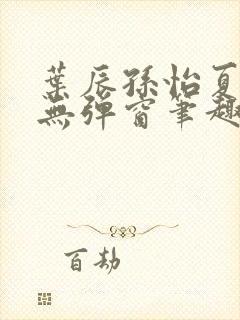 葉辰孫怡夏
無彈窗筆趣
百劫